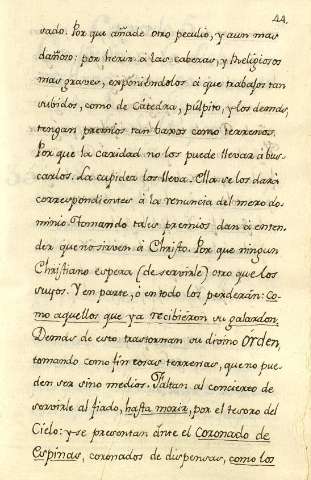 44.
sado. Por que añade otro peculio, y aun mas
dañoso: por herir à las cabezas, y Religiosos
mas graves, exponiéndolos à que trabajos tan
subidos, como de Cátedra, púlpito, y los demas,
tengan premios tan baxos como terrenos.
Por que la caridad no los puede llevar à bus-
carlos. La cupidez los lleva. Ella se los dará
correspondientes à la renuncia del mero do-
minio. Tomando tales premios dan à enten-
der que no sirven à Christo. Por que ningun
Christiano espera (de servirle) otro que los
suyos. Y en parte, ò en todo los perderán: Co-
mo aquellos que ya recibieron su galardon.
Demas de esto trastornan su divino Órden,
tomando como fin cosas terrenas, que no pue-
den ser sino medios. Faltan al concierto de
servirle al fiado, hasta morir, por el tesoro del
Cielo: y se presentan ánte el Coronado de
Espinas, coronados de dispensas, como los